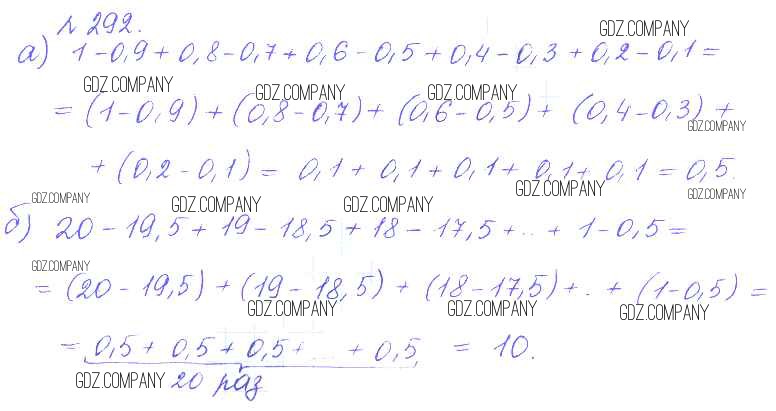 № 292.
GDZ.COMPANY
а) 1-0,9+0,8-0,7+0,6-0,5+0,4-0,3+0,2-0,1=
GDZ.COMPANY GDZ.COMPANY GDZ.COMPANY
=(1-0,9)+(0,8-0,7)+(0,6-0,5)+(0,4-0,3)+
GDZ.COMPANY
+(0,2-0,1)=0,1+0,1+0,1+0,1+0,1=0,5.
GDZ.COMPANY GDZ.COMPANY
GDZ.COMPANY GDZ.COMPANY GDZ.COMPANY
б) 20-19,5+19-18,5+18-17,5+..+1-0,5=
GDZ.COMPANY
=(20-19,5)+(19-18,5)+(18-17,5)+..+(1-0,5)=
GDZ.COMPANY GDZ.COMPANY GDZ.COMPANY
=0,5+0,5+0,5+...+0,5=10.
GDZ.COMPANY 20 раз